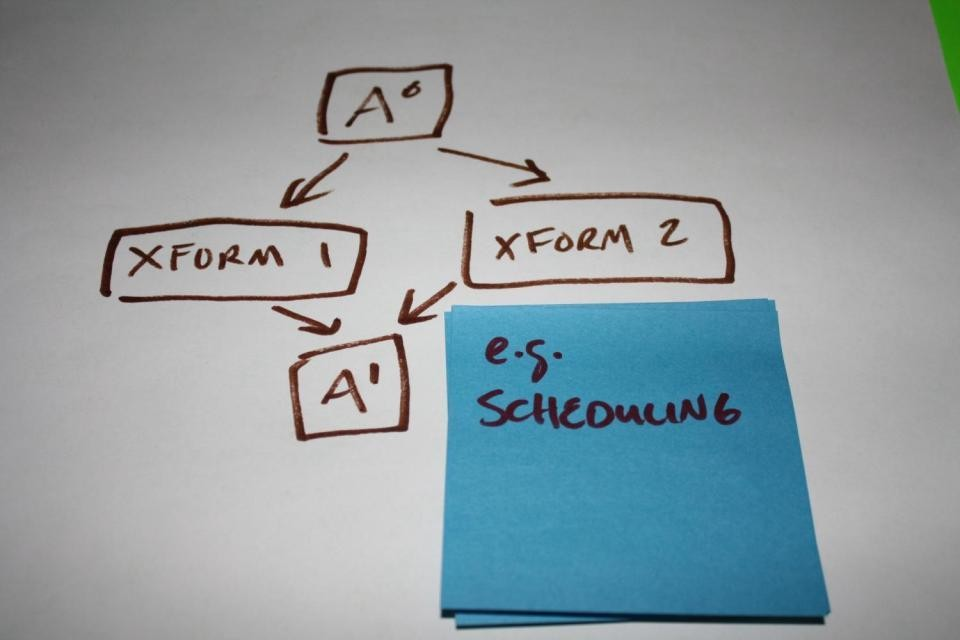 A⁰
XFORM 1
XFORM 2
A¹
e.g.
SCHEDULING